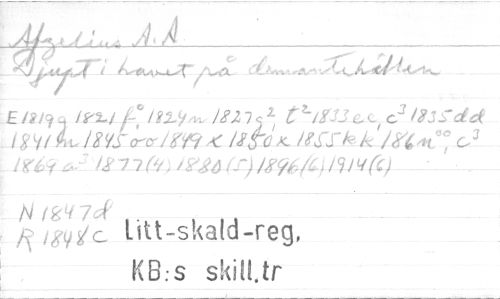 Afzelius A.A
Djupt i havet på demantehällen
E1819g 1821 f° 1824m 1827g², t² 1833ec, c³ 1835dd
1841m 1845öö 1849x 1850x 1855kk 186 c³
1869a³ 1877(4) 1880(5) 1896(6) 1914(6)
N 1847d
R 1848c Litt-skald-reg,
KB:s skill.tr